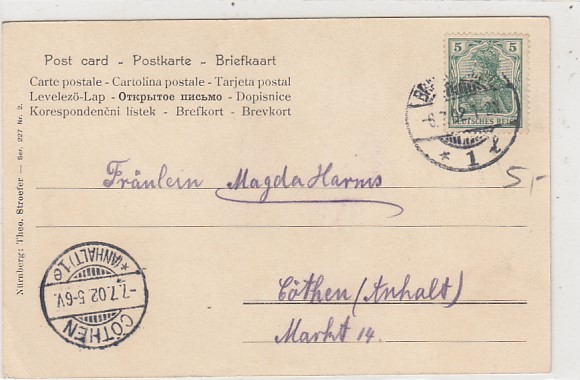 Post card - Postkarte - Briefkaart
Carte postale - Cartolina postale - Tarjeta postal
Levelező-Lap - Открытое письмо - Dopisnice
Korespondenční lístek - Brefkort - Brevkort
5 5
DEUTSCHES REICH
-6.7.02
* 1 l
Fräulein Magda Harms
5,-
Cöthen (Anhalt)
Markt 14.
CÖTHEN
-7.7.02. 5-6V.
* (ANHALT) 1 e
Nürnberg: Theo. Stroefer — Ser. 227 Nr. 2.